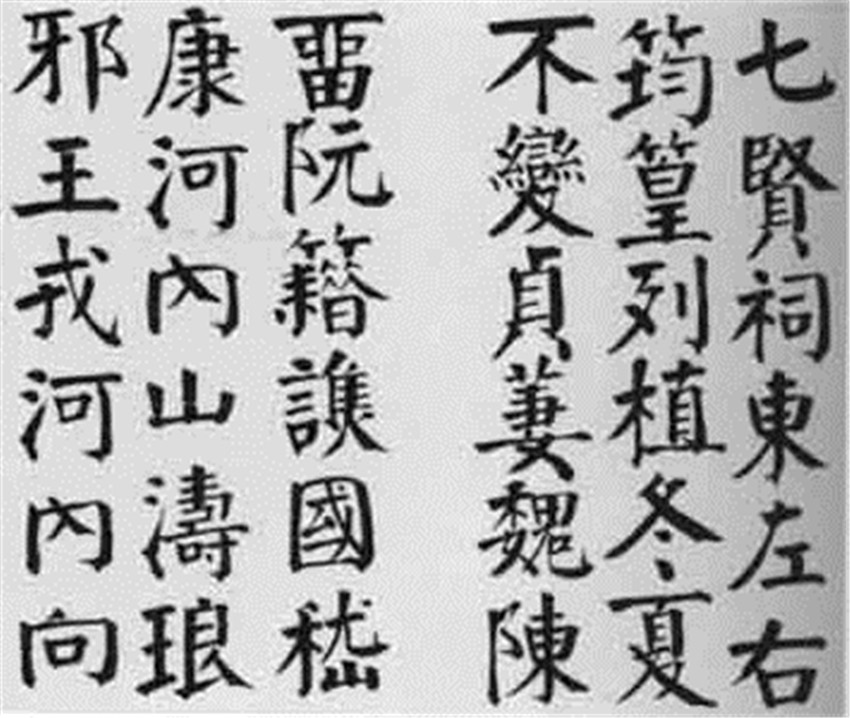 七賢祠東左右
筠篁列植冬夏
不變貞萋魏陳
畱阮籍譙國嵇
康河內山濤琅
邪王戎河內向